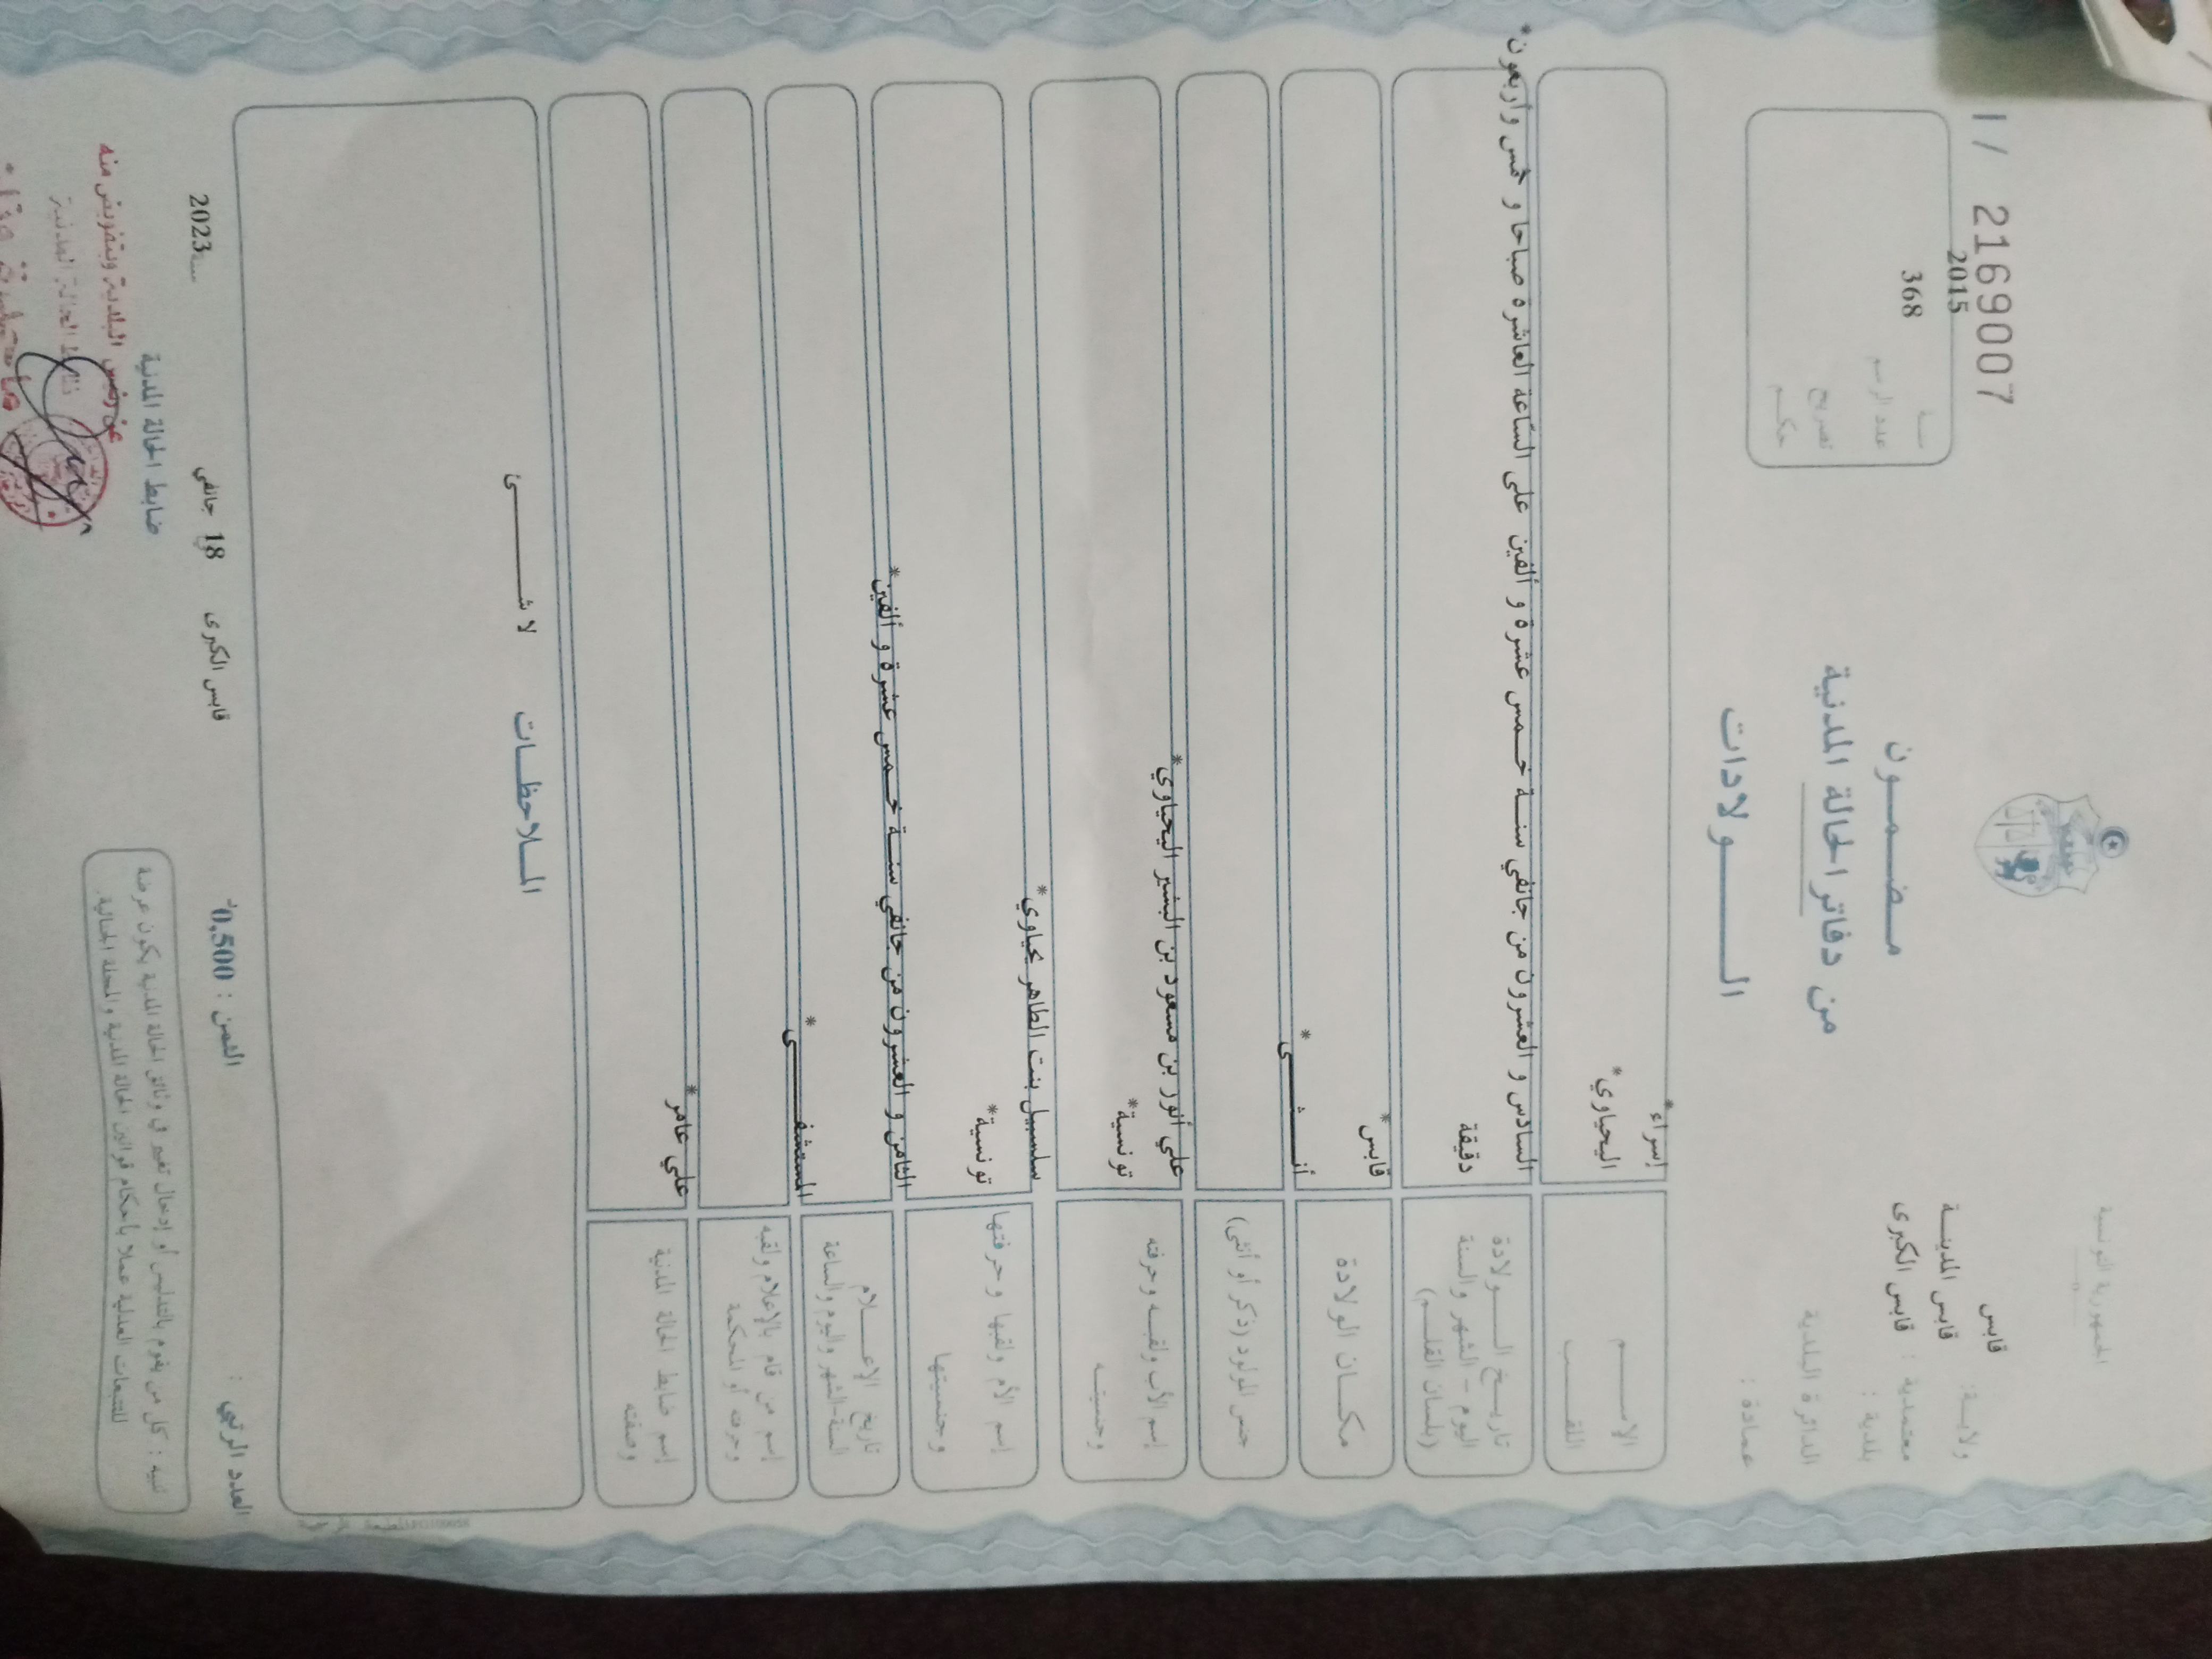 الجمهورية التونسية
I / 2169007
ولايــة: قابس
معتمدية : قابس المدينــة
بلدية : قابس الكبرى
الدائرة البلدية
عمادة :
سنــة 2015
عدد الرسم 368
تصريح
حكــم
مـضـمــون
من دفاتر الحالة المدنية
الــــولادات
الاســــم
إسراء*
اللقــــب
اليحياوي*
تاريـــخ الـــــولادة
اليوم – الشهر والسنة
(بلسان القلــم)
السادس و العشرون من جانفي سنــة خــمس عشرة و ألفين على السّاعة العاشرة صباحا و خمس وأربعون*
دقيقة
مكـــان الولادة
قابس*
جنس المولود (ذكر أو أنثى)
أنــــثـــــى*
إسم الأب ولقبــه وحرفته
وجنسيتــه
علي أنور بن مسعود بن البشير اليحياوي*
تونسية*
إسم الأم ولقبها وحرفتها
وجنسيتها
سلسبيل بنت الطاهر يحياوي*
تونسية*
تاريخ الإعــــلام
السنة-الشهر واليوم والساعة
الثامن و العشرون من جانفي سنــة خــمس عشرة و ألفين*
إسم من قام بالإعلام ولقبه
وحرفته أو المحكمة
المستشفـــــــى*
إسم ضابط الحالة المدنية
وصفته
علي عامر*
المــلاحظــات
لا شـــــــئ
العدد الرتبي :
الثمن : 0,500د
قابس الكبرى في 18 جانفي سنــة 2023
ضابط الحالة المدنية
عن رئيس البلدية وبتفويض منه
ضابط الحالة المدنية
تنبيه : كل من يقوم بالتدليس أو إدخال تغيير في وثائق الحالة المدنية يكون عرضة
للتتبعات العدلية عملا بأحكام قوانين الحالة المدنية والمجلة الجنائية.